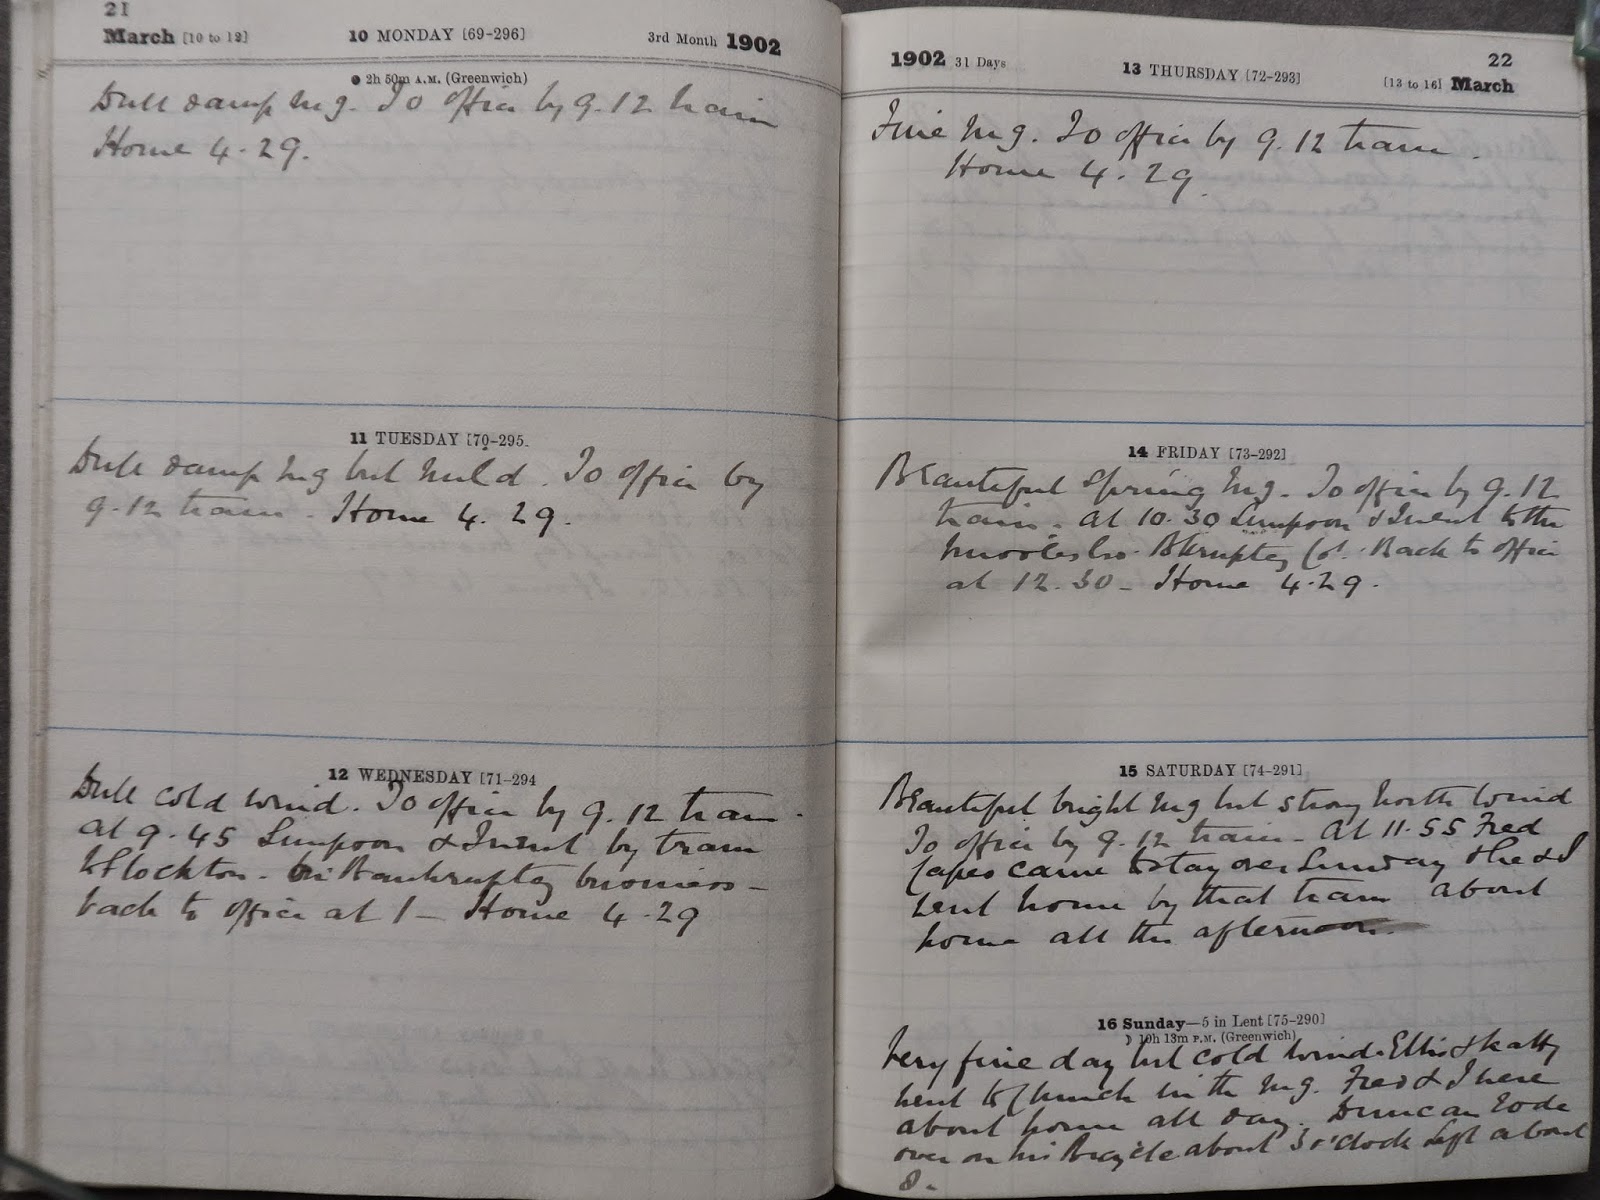 21
March [10 to 12] 10 MONDAY [69-296] 3rd Month 1902
● 2h 50m A.M. (Greenwich)
Dull damp Mg. To office by 9.12 train
Home 4.29.
11 TUESDAY [70-295.
Dull damp Mg but mild. To office by
9.12 train. Home 4.29.
12 WEDNESDAY [71-294
Dull cold wind. To office by 9.12 train.
at 9.45 Simpson & I went by tram
to Stockton. on Bankruptcy business -
back to office at 1 - Home 4.29
1902 31 Days 13 THURSDAY [72-293] 22
[13 to 16] March
Fine Mg. To office by 9.12 train.
Home 4.29.
14 FRIDAY [73-292]
Beautiful Spring Mg. To office by 9.12
train. at 10.30 Simpson & I went to the
Bkruptcy Ct. Back to office
at 12.30 - Home 4.29.
15 SATURDAY [74-291]
Beautiful bright Mg but strong North Wind
To office by 9.12 train - At 11.55 Fred
Capes came to stay over Sunday & he & I
went home by that train about
home all the afternoon.
16 Sunday—5 in Lent [75-290]
☽ 10h 13m P.M. (Greenwich)
Very fine day but cold wind. Ellis & Katty
went to Church in the Mg. Fred & I were
about home all day. Duncan rode
over on his Bicycle about 3 o'clock left about
8.